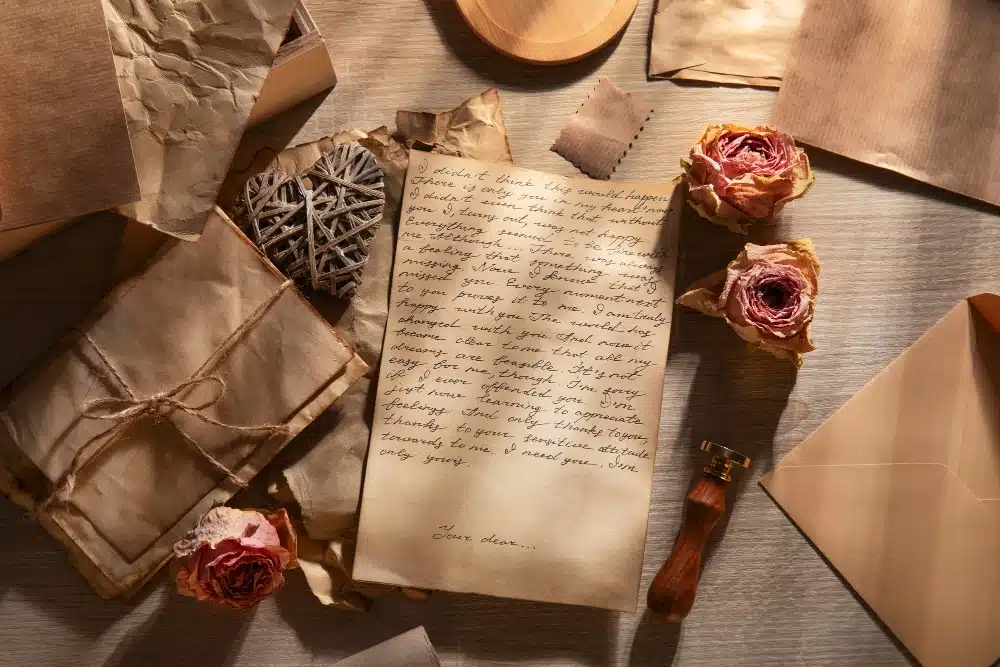 I didn't think this would happen
There is only you in my heart now
I didn't even think that without
you I, turns out, was not happy
Everything seemed to be fine with
me Although... There was always
a feeling that something was
missing. Now I know that I
missed you. Every moment next
to you proves it to me. I am truly
happy with you The world has
changed with you. And now it
became clear to me that all my
dreams are feasible. It's not
easy for me, though I'm sorry
if I ever offended you. I'm
just now learning to appreciate
feelings. And only thanks to you,
thanks to your sensitive attitude
towards to me. I need you. I'm
only yours.
Your dear...